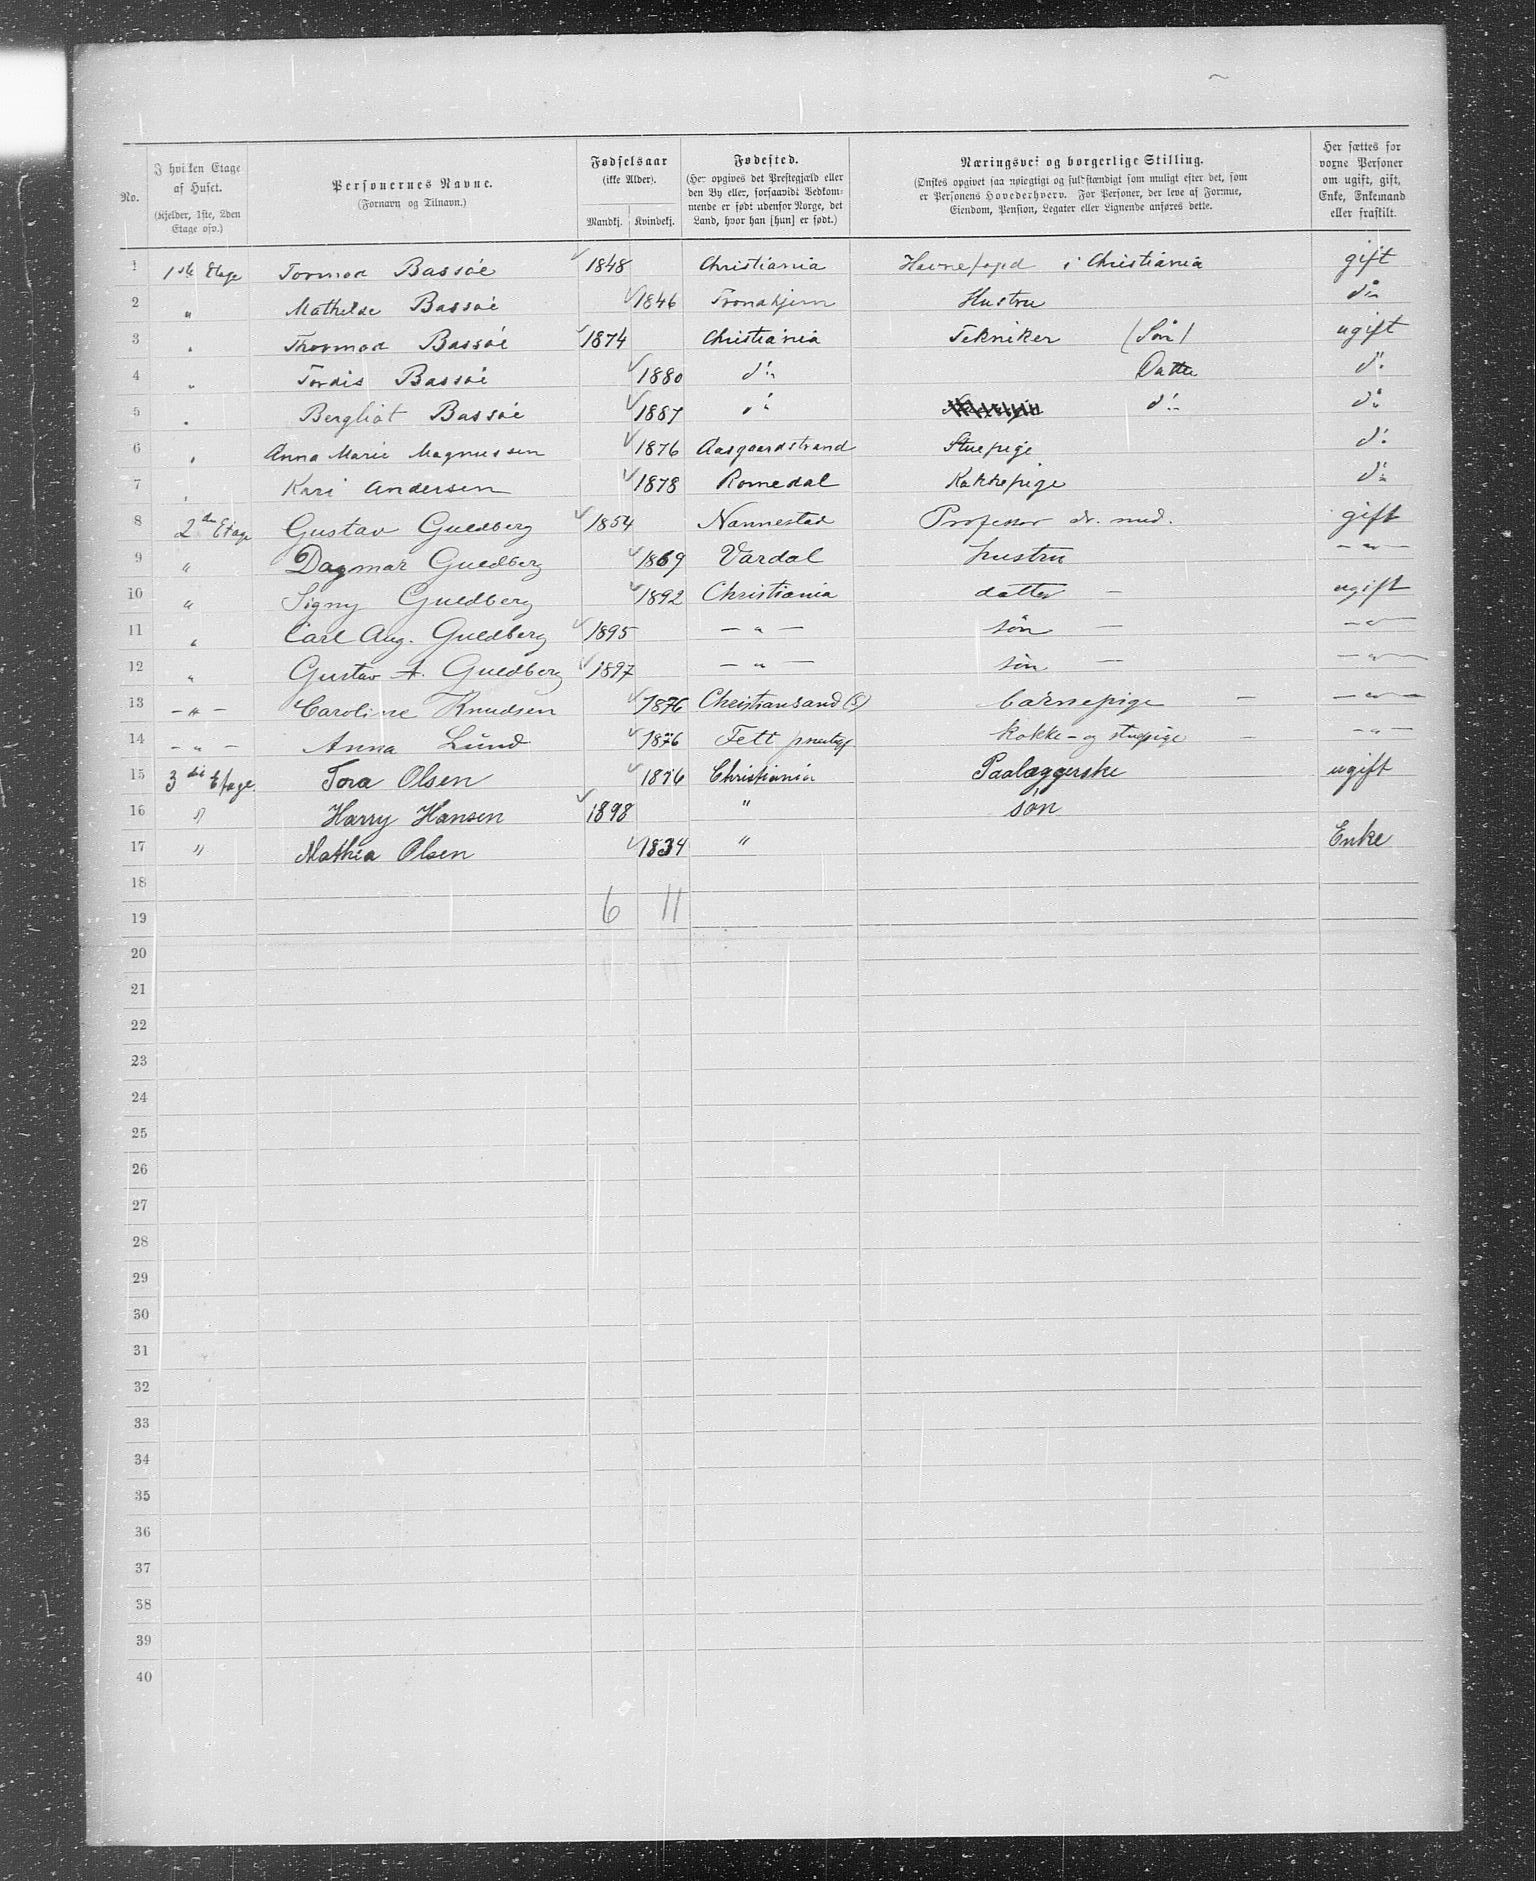 No. | I hvilken Etage af Huset. (Kjelder, 1ste, 2den Etage osv.) | Personernes Navne. (Fornavn og Tilnavn.) | Fødselsaar (ikke Alder). Mandkj. | Kvindekj. | Fødested. (Her opgives det Prestegjæld eller den By eller, forsaavidt Vedkommende er født udenfor Norge, det Land, hvor han [hun] er født.) | Næringsvei og borgerlige Stilling. (Ønskes opgivet saa nøiegtigt og fuldstændigt som muligt efter det, som er Personens Hovederhverv. For Personer, der leve af Formue, Eiendom, Pension, Legater eller Lignende anføres dette.) | Her sættes for voxne Personer om ugift, gift, Enke, Enkemand eller fraskilt.
1 | 1ste Etage | Tormod Bassøe | 1848 | | Christiania | Havnefoged i Christiania | gift
2 | " | Mathilde Bassøe | | 1846 | Trondhjem | Hustru | do
3 | " | Thormod Bassøe | 1874 | | Christiania | Tekniker (Søn) | ugift
4 | " | Tordis Bassøe | | 1880 | do | Datter | do
5 | " | Bergliot Bassøe | | 1887 | do | do | do
6 | " | Anna Marie Magnussen | | 1876 | Aasgaardstrand | Stuepige | do
7 | " | Kari Andersen | | 1878 | Romedal | Kokkepige | do
8 | 2den Etage | Gustav Guldberg | 1854 | | Nannestad | Professor dr. med. | gift
9 | " | Dagmar Guldberg | | 1869 | Vardal | hustru | — " —
10 | " | Signy Guldberg | | 1892 | Christiania | datter — | ugift
11 | " | Carl Aug. Guldberg | 1895 | | — " — | søn — | — " —
12 | " | Gustav A. Guldberg | 1897 | | — " — | søn — | — " —
13 | — " — | Caroline Knudsen | | 1876 | Christiansand (S) | barnepige — | — " —
14 | — " — | Anna Lund | | 1876 | Fett prestegj. | kokke- og stuepige — | — " —
15 | 3die Etage. | Tora Olsen | | 1876 | Christiania | Paalæggerske | ugift
16 | " | Harry Hansen | 1898 | | " | søn
17 | " | Mathia Olsen | | 1834 | " | | Enke
18
19 | 6 | 11
20
21
22
23
24
25
26
27
28
29
30
31
32
33
34
35
36
37
38
39
40